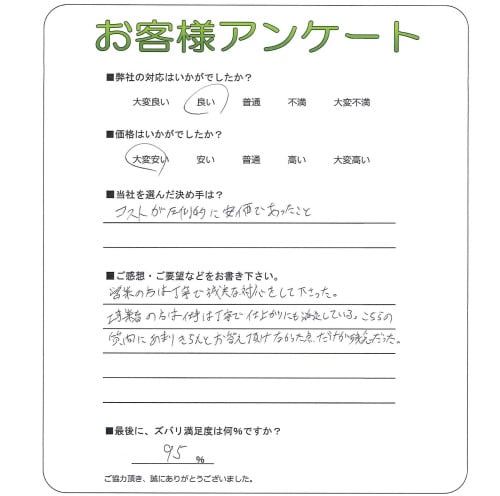 お客様アンケート
■弊社の対応はいかがでしたか?
大変良い 良い 普通 不満 大変不満
■価格はいかがでしたか?
大変安い 安い 普通 高い 大変高い
■当社を選んだ決め手は?
コストが圧倒的に安価であったこと
■ご感想・ご要望などをお書き下さい。
営業の方は丁寧で誠実な対応をして下さった。
工事業者の方は仕事は丁寧で仕上がりにも満足している。こちらの
質問にあまりきちんとお答え頂けなかった点だけが残念だった。
■最後に、ズバリ満足度は何%ですか?
95 %
ご協力頂き、誠にありがとうございました。